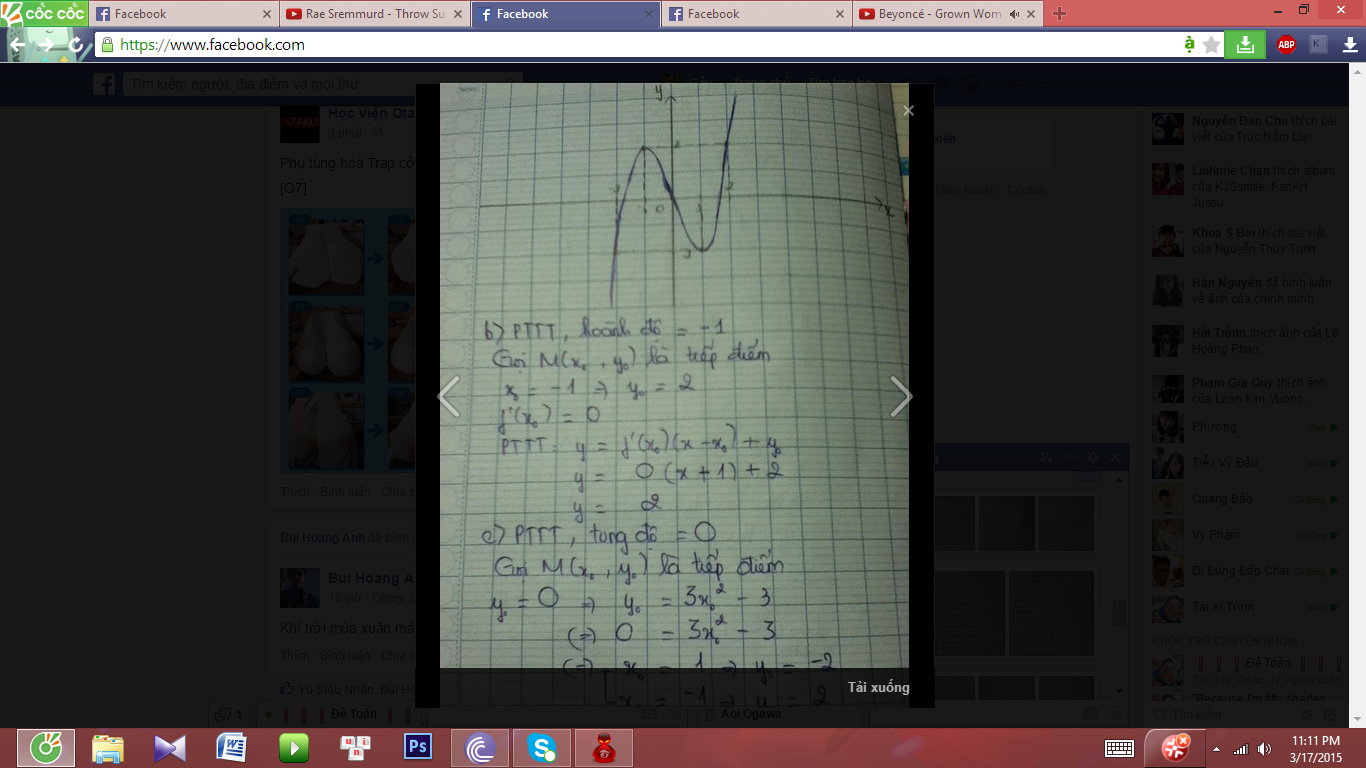 cốc cốc
Facebook
Rae Sremmurd - Throw Su
Facebook
Facebook
Beyoncé - Grown Wom
https://www.facebook.com
ABP
K
Tìm kiếm người, địa điểm và mọi thứ
Trang chủ
Tìm bạn bè
Học Viện Ota
3 phút
Phụ tùng hóa Trap cở
[Q7]
Thích Bình luận Chia s
Bui Hoang Anh đã bình l
Bui Hoang A
16 giờ
Khi trời mùa xuân mà
Thích Bình luận Chia s
Yu Siêu Nhân, Bui Ho
y
x
0
2
b) PTTT, hoành độ = -1
Gọi M(x₀, y₀) là tiếp điểm
x₀ = -1 => y₀ = 2
f'(x₀) = 0
PTTT: y = f'(x₀)(x-x₀) + y₀
y = 0(x+1)+2
y = 2
c) PTTT, tung độ = 0
Gọi M(x₀, y₀) là tiếp điểm
y₀ = 0 => y₀ = 3x₀² - 3
(=) 0 = 3x₀² - 3
(=) x₀ = 1 => y₀ = -2
x₀ = -1 => y₀ = 2
Tải xuống
Điều khoản Cookie
Nguyên Đan Chu thích bài
viết của Trúc Nấm Lùn
Linhmie Chan thích album
của KJSsmile. FanArt
Junsu.
Khoa S Bin thích bài viết
của Nguyễn Thùy Trinh.
Hân Nguyên đã bình luận
về ảnh của chính mình:
Hải Trânn thích ảnh của Lê
Hoàng Phan.
Phạm Gia Quý thích ảnh
của Loan Kim Vuong.
Phương
Web
Tiểu Vỹ Đầu
Web
Quang Bảo
Di động
Vy Phạm
Di động
Di Đúng Đập Chai
Di động
Tài Xỉ Trum
Web
CUỘC TRÒ CHUYỆN NHÓM
Đề Toán
Tài, Tây, Quốc, 17 người khác
"Because I'm fifty shades
Tìm kiếm
1
Đề Toán
Aoi Ogawa
W
Ps
S
11:11 PM
3/17/2015